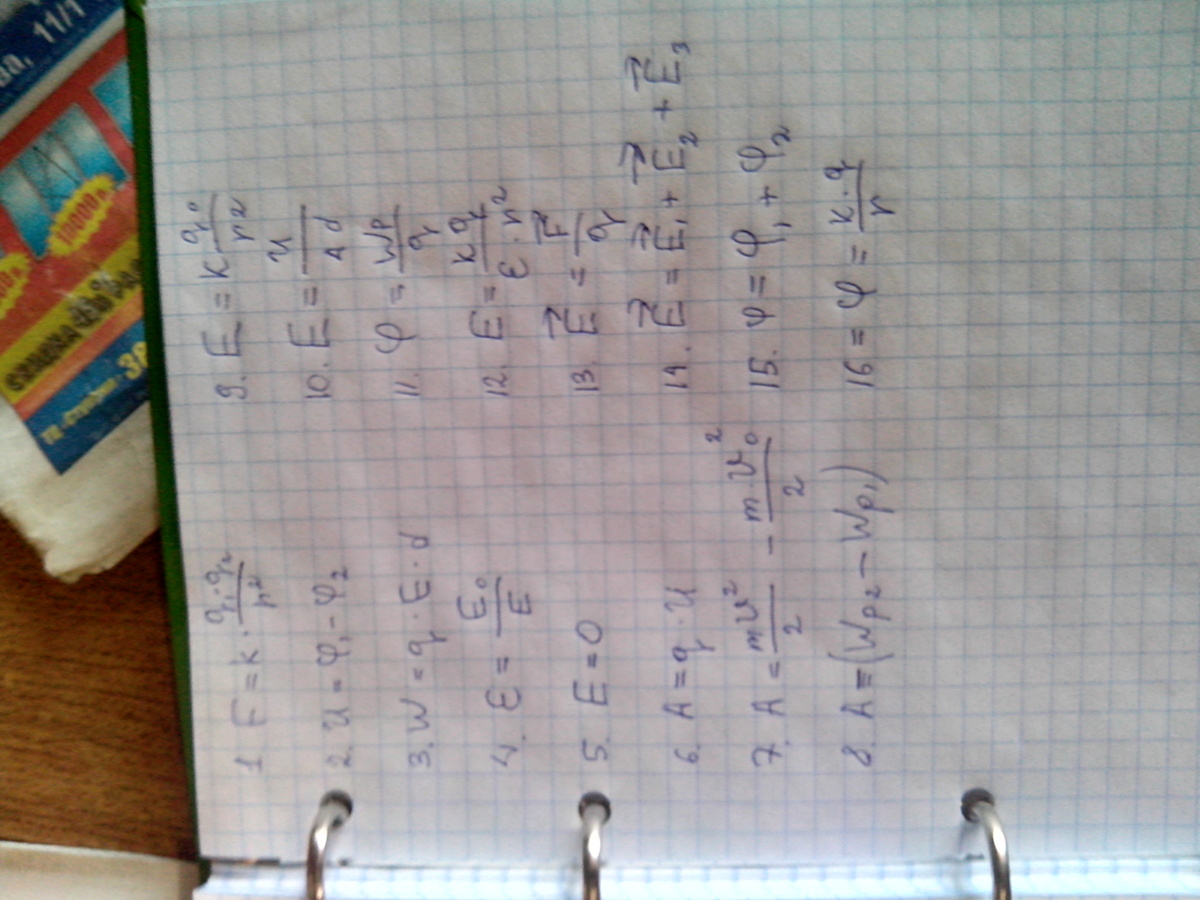 1 F = k · q₁·q₂/r²
2. U = φ₁ - φ₂
3. W = q · E · d
4. ε = E₀/E
5. E = 0
6. A = q · U
7. A = mυ²/2 - m·υ₀²/2
8. A = (Wp₂ - Wp₁)
9. E = k q₀/r²
10. E = U/Δd
11. φ = Wp/q
12. E = k q/ε·r²
13. E⃗ = F⃗/q
14. E⃗ = E⃗₁ + E⃗₂ + E⃗₃
15. φ = φ₁ + φ₂
16 = φ = k·q/r
11/1